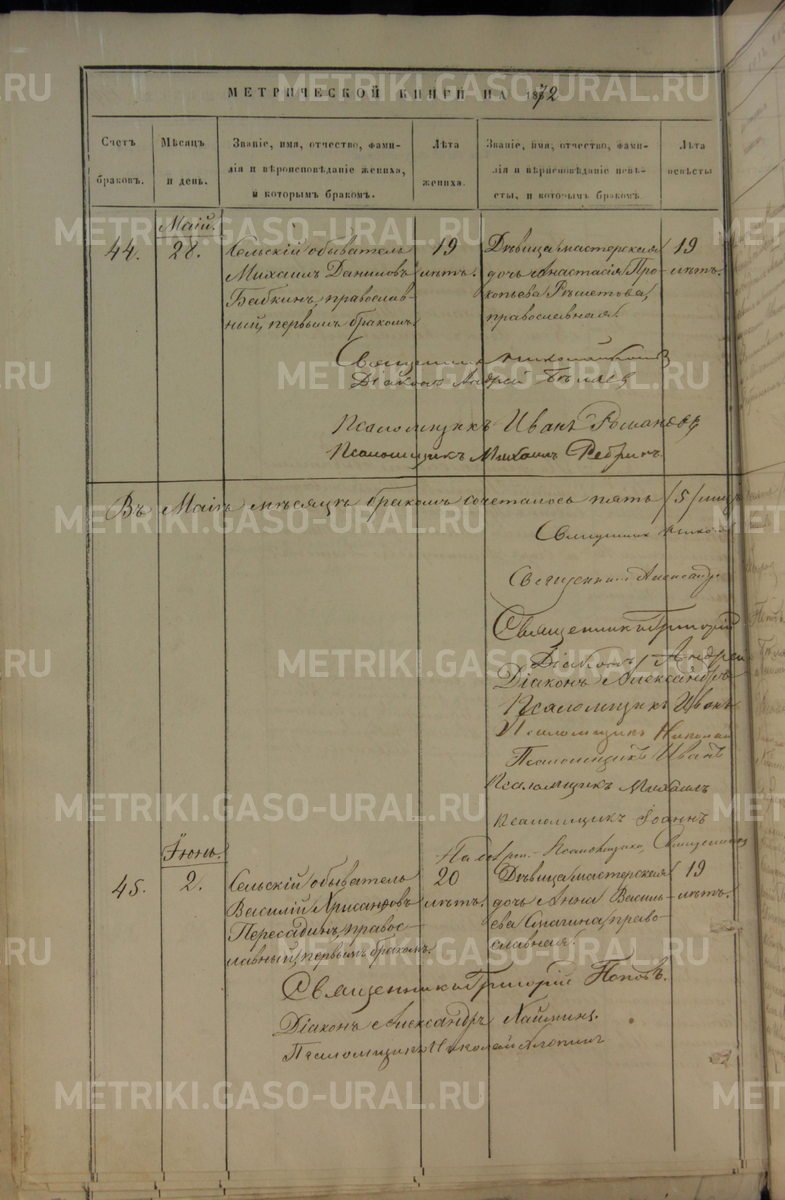 МЕТРИЧЕСКОЙ КНИГИ НА 1872
Счетъ браковъ.
Мѣсяцъ и день.
Званіе, имя, отчество, фами-
лія и вѣроисповѣданіе жениха,
и которымъ бракомъ.
Лѣта
жениха.
Званіе, имя, отчество, фами-
лія и вѣроисповѣданіе невѣ-
сты, и которымъ бракомъ.
Лѣта
невѣсты
Май.
44.
28.
Сельскій обыватель
Михаилъ Даниловъ
Бабкинъ, православ-
ный, первымъ бракомъ.
19
лѣтъ.
Дѣвица мастерская
дочь Анастасія Про-
копьева Рѣшетова,
православная.
19
лѣтъ.
Священникъ
Діаконъ Андрей Бѣляев
Псаломщикъ Иванъ Романовъ
Псаломщикъ Михаилъ Ребринъ
Въ Маіѣ мѣсяцѣ бракомъ сочеталось пять /5/
Священникъ
Священникъ Александр
Священникъ Григорій
Діаконъ Андрей
Діаконъ Александръ
Псаломщикъ Иванъ
Псаломщикъ Николай
Псаломщикъ Иванъ
Псаломщикъ Михаилъ
Псаломщикъ Іоаннъ
Іюнь.
45.
2.
Сельскій обыватель
Василій Хрисанфовъ
Пересадинъ, правос-
лавный, первымъ бракомъ.
20
лѣтъ.
Дѣвица мастерская
дочь Анна Василь-
ева Смагина, право-
славная.
19
лѣтъ.
Священникъ Григорій Поповъ.
Діаконъ Александръ
Псаломщикъ Николай
METRIKI.GASO-URAL.RU